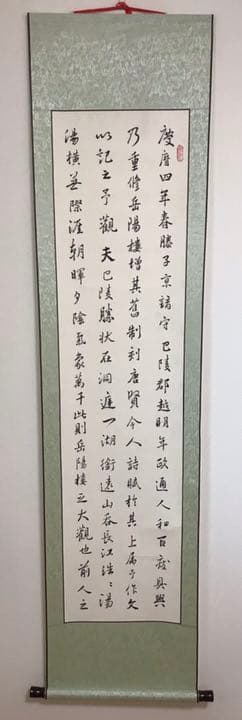 慶曆四年春滕子京謫守巴陵郡越明年政通人和百廢具興
乃重修岳陽樓增其舊制刻唐賢今人詩賦於其上屬予作文
以記之予觀夫巴陵勝狀在洞庭一湖銜遠山吞長江浩〻湯
湯橫無際涯朝暉夕陰氣象萬千此則岳陽樓之大觀也前人之